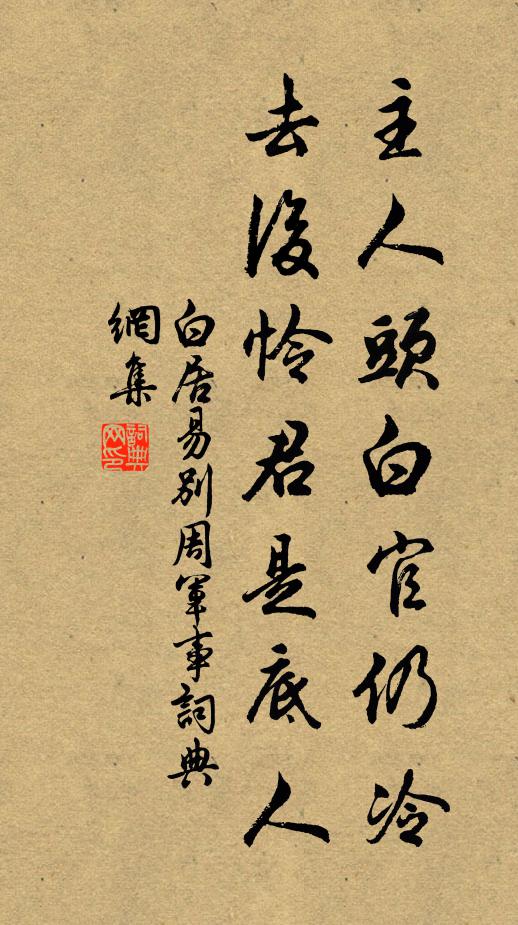 主人頭白官仍冷
去後憐君是底人
白居易別周軍事詞典
網集
詞典
网印